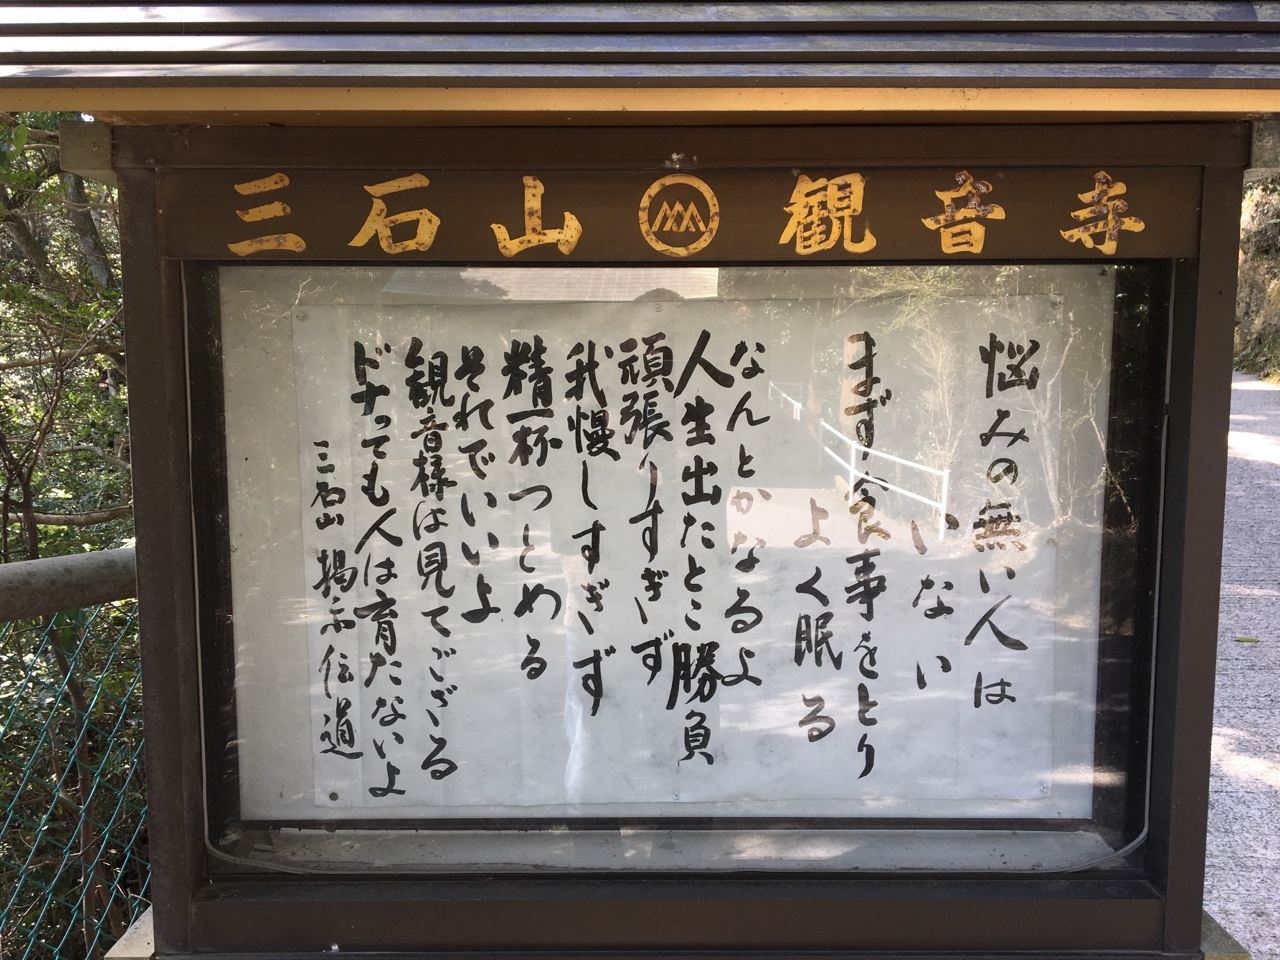 三石山 観音寺
悩みの無い人は
いない
まず食事をとり
よく眠る
なんとかなるよ
人生出たとこ勝負
頑張りすぎず
我慢しすぎず
精一杯つとめる
それでいいよ
観音様は見てござる
ドナっても人は育たないよ
三石山 掲示伝道